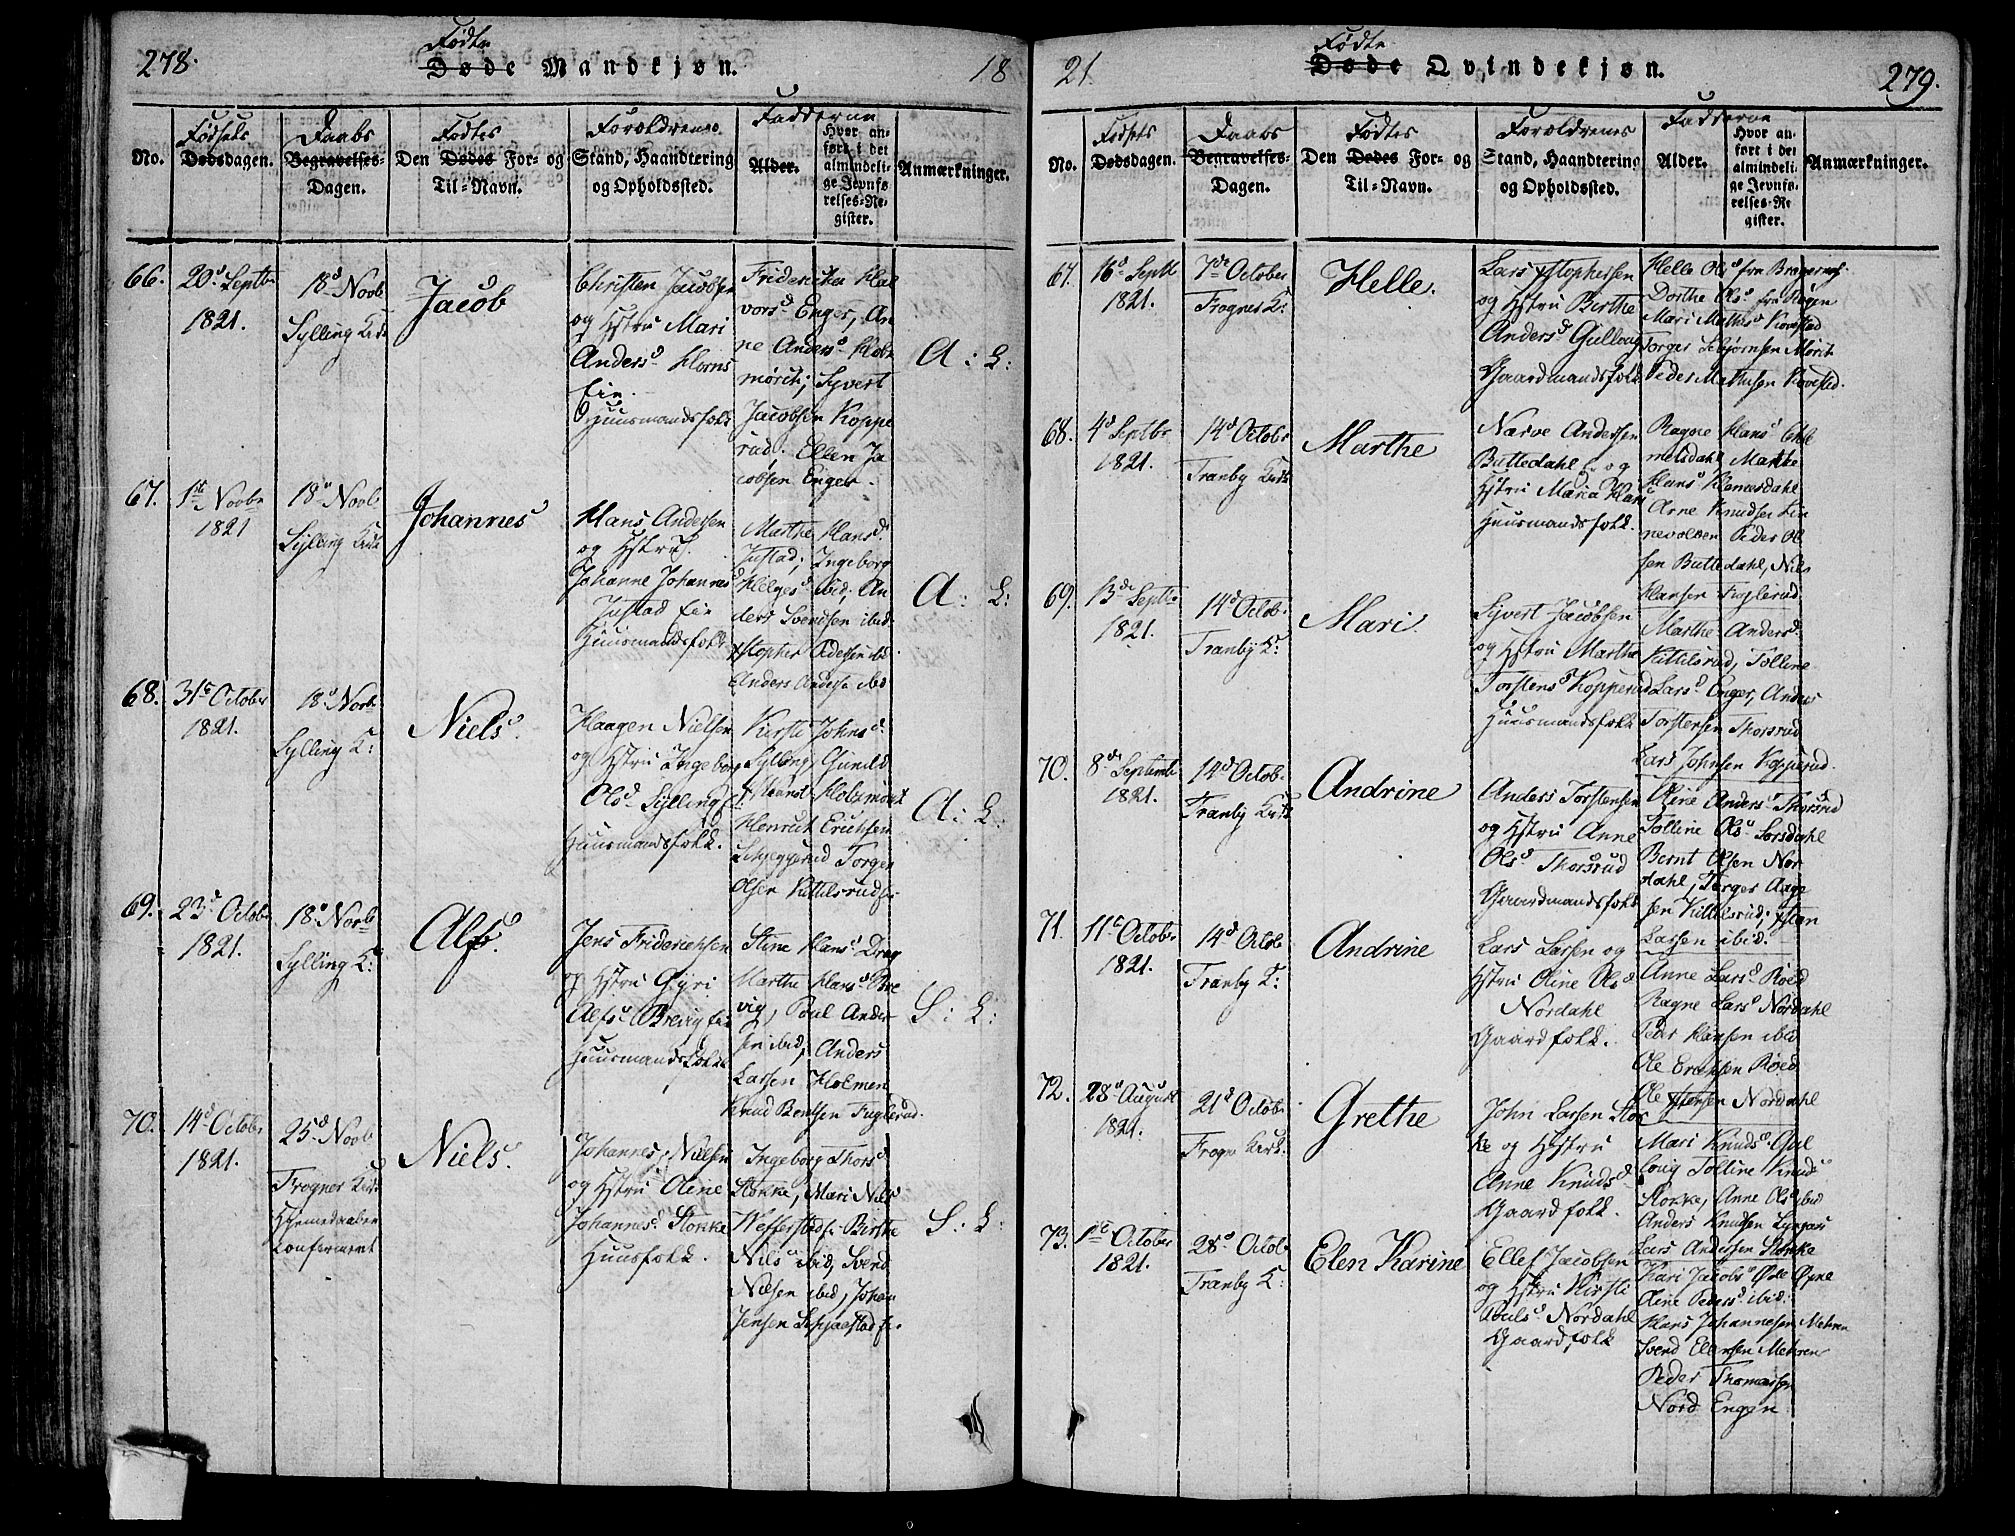 278.
Fødte
Døde Mandkjøn.
18
No.
Fødsels
Dødsdagen.
Daabs
Begravelses-
Dagen.
Fødtes
Den Dødes For- og
Til-Navn.
Forældrenes
Stand, Haandtering
og Opholdssted.
Fadderne
Alder.
Hvor an-
ført i det
almindeli-
ge Jevnfø-
relses-Re-
gister.
Anmærkninger.
66.
20d Septbr
1821.
18d Novb
Sylling Kirke
Jacob
Christen Jacobsen
og Hstru Mari
Andersd Horns
Eie.
Huusmandsfolk
Fridericka Hal
vorsd Enger, An
ne Andersd Holt
mörik; Syvert
Jacobsen Koppe
rud. Ellen Ja
cobsen Enger.
A: L:
67.
1ste Novbr
1821
18d Novb
Sylling Kirke
Johannes
Hans Andersen
og Hstru
Johanne Johannesd
Justad Eie
Huusmandsfolk
Marthe Hansd
Justad; Ingeborg
Helgesd ibid; An
ders Svendsen ibid
Anders Anderse ibid
A: L:
68.
31te October
1821.
18d Novb
Sylling K:
Niels.
Haagen Nielsen
og Hstru Ingeborg
Olsd Sylling E:
Huusmandsfolk.
Kirsti Johnsd
Sylling, Gunild
Henrick Erichsen
Skjeggerud Torger
Olsen Kittilsrudei
A: L:
69.
23d Octobr
1821.
18d Novb
Sylling K:
Alf.
Jens Friderichsen
og Hstru Gyri
Alfsd Brevig Eie
Huusmandsfolk
Stine Hansd Drag
Marthe Hansd Bre
vig, Poul Ander
sen ibid, Anders
Larsen Holmen
Knud Bentsen Fuglerud.
S: L:
70.
14d Octobr
1821.
25d Novb
Frogner Kirke
Hjemedaaben
Confirmert
Niels.
Johannes Nielsen
og Hstru Oline
Johannesd Stokke
Huusfolk.
Ingeborg Thorsd
Stokke, Mari Nielsd
Birthe
Nilsd ibid, Svend
Nilsen ibid, Johan
Jensen
S: L:
21.
Fødte
Døde Qvindekjøn.
279.
No.
Fødsels
Dødsdagen.
Daabs
Begravelses-
Dagen.
Fødtes
Den Dødes For- og
Til-Navn.
Forældrenes
Stand, Haandtering
og Opholdssted.
Fadderne
Alder.
Hvor an-
ført i det
almindeli-
ge Jevnfø-
relses-Re-
gister.
Anmærkninger.
67.
16d Septb
1821.
7de October
Frogner K:
Helle.
Lars Xstophersen
og Hstru Birthe
Andersd Gulloug
Gaardmandsfolk
Helle Olsd fra Bragernæs.
Dorthe Olsd fra Skogen
Mari Mathisd Kovestad
Torger Esbjørnsen Mörik
Peder Mathisen Kovestad.
68.
4d Septbr
1821.
14d Octobr
Tranby Kirke
Marthe
Narve Andersen
Buttedahl og
Hstru Maria Hans
Huusmandsfolk.
Ragne Hansd
melsdahl Marthe
Hansd Hemmelsdahl
Arne Knudsen Lin
nevolden Peder Ol
sen Buttedahl, Nils
Hansen Fuglerud
69.
13de Septbr
1821.
14d Octob.
Tranby K:
Mari.
Syvert Jacobsen
og Hstru Marthe
Torstensd Kopperud
Huusmandsfolk
Marthe Andersd
Kittilsrud, Tolline
Larsd Enger, Anders
Torstensen Thorsrud
Lars Johnsen Kopperud.
70.
8de Septembr
1821.
14d Octob.
Tranby Kirke
Andrine
Anders Torstensen
og Hstru Anne
Olsd Thorsrud
Gaardmandsfolk
Oline Andersd Thorsrud
Tolline Olsd Sørsdahl
Bernt Olsen Nor
dahl, Torger Aage
sen Kittilsrud; Xsten
Larsen ibid.
71.
11te Octobr
1821.
14d Octob
Tranby K:
Andrine
Lars Larsen og
Hstru Oline Olsd
Nordahl
Gaardfolk.
Anne Larsd Röed
Ragne Larsd Nordahl
Peder Hansen ibid
Ole Erichsen Röed
Ole Xstensen Nordahl
72.
28d August
1821.
21d Octob.
Frogn Kirk.
Grethe
John Larsen Stok
ke og Hstru
Anne Knudsd
Gaardfolk.
Mari Knudsd Gul
loug Tolline Knudsd
Stokke, Anne Olsd ibid
Anders Knudsen
Lars Andersen Stokke
73.
1ste October
1821.
28d Octob
Tranby K:
Elen Karine
Ellef Jacobsen
og Hstru Kirsti
Poulsd Nordahl
Gaardfolk
Kari Jacobsd Øvne
Oline Pedersd ibid:
Hans Johannesen Mehren
Svend Ellensen Mehren
Peder Thomassen
Nord Engen